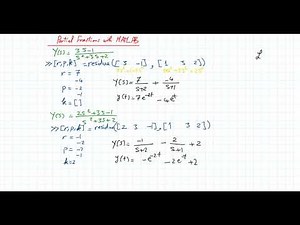 Partial Fractions with MATLAB
Y(s) = 3s-1
s²+3s+2
>> [r,p,k] = residue([3 -1],[1 3 2])
r = 7
-4
Y(s) = 7/s+2 - 4/s+1
p = -2
-1
y(t) = 7e^-2t - 4e^-t
k = []
Y(s) = 2s²+3s-1
s²+3s+2
>> [r,p,k] = residue([2 3 -1],[1 3 2])
r = -1
-2
Y(s) = -1/s+2 - 2/s+1 + 2
p = -2
-1
k = 2
y(t) = -e^-2t - 2e^-t + 2